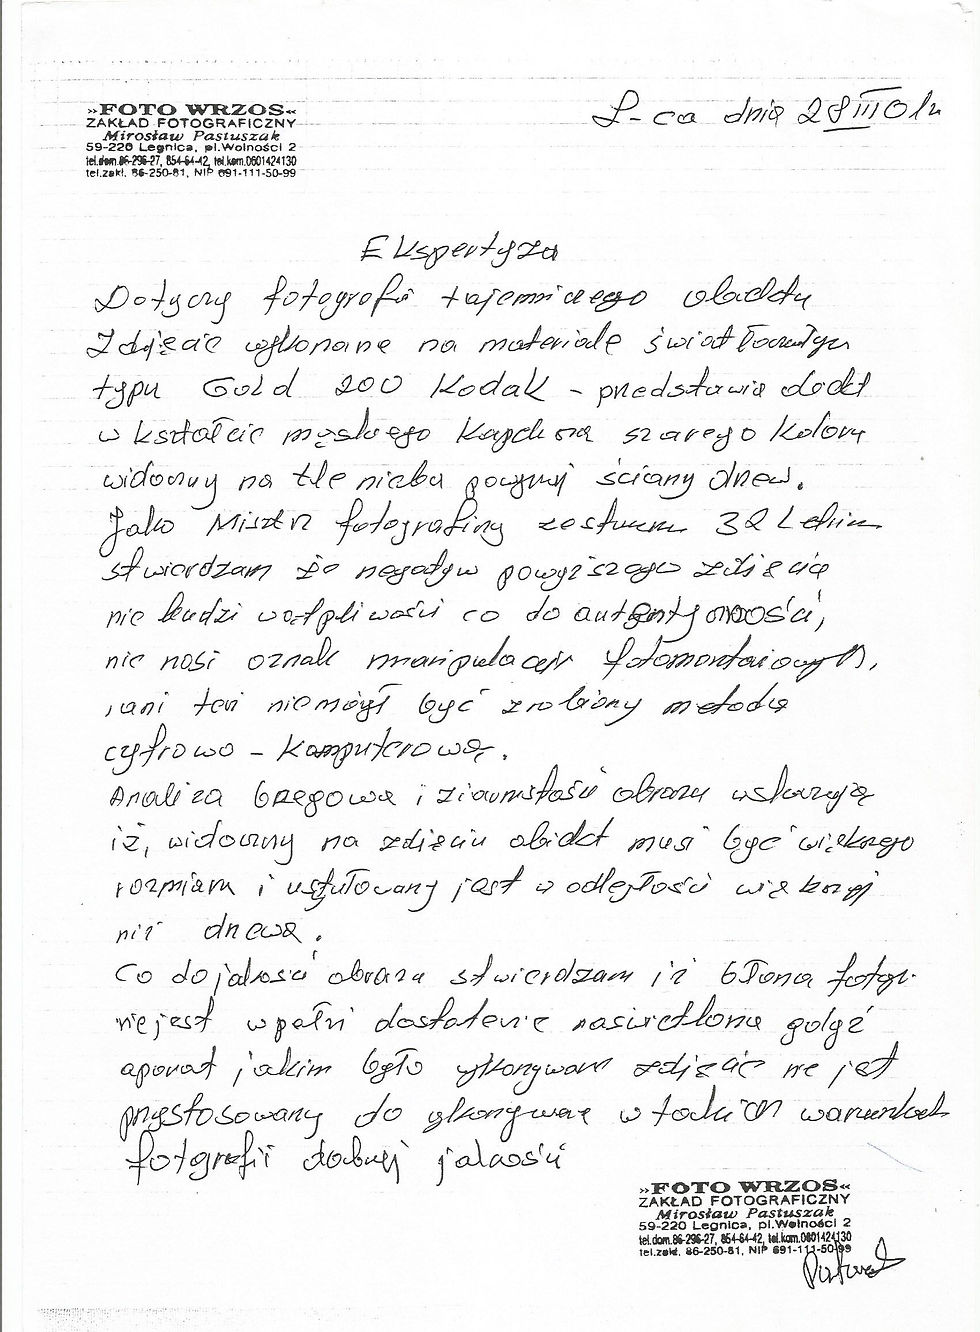 »FOTO WRZOS«
ZAKŁAD FOTOGRAFICZNY
Mirosław Pastuszak
59-220 Legnica, pl.Wolności 2
tel.dom.86-296-27, 854-64-42, tel.kom.0601424130
tel.zakł. 86-250-81, NIP 691-111-50-99
L-ca dnia 28 III 01r
Ekspertyza
Dotyczy fotografii tajemniczego obiektu
Zdjęcie wykonane na materiale światłoczułym
typu Gold 200 Kodak - przedstawia obiekt
w kształcie męskiego kapelusza szarego koloru
widoczny na tle nieba powyżej ściany drzew.
Jako Mistrz fotografiny ze stażem 32 Letnim
stwierdzam że negatyw powyższego zdjęcia
nie budzi wątpliwości co do autentyczności,
nie nosi oznak manipulacji fotomontażowych,
, ani też nie mógł być zrobiony metodą
cyfrowo - komputerową.
Analiza brzegowa i ziarnistości obrazu wskazują
iż, widoczny na zdjęciu obiekt musi być większego
rozmiaru i usytuowany jest w odległości większej
niż drzewa.
Co do jakości obrazu stwierdzam iż błona fotogr.
nie jest w pełni dostatecznie naświetlona gdyż
aparat jakim było wykonywane zdjęcie nie jest
przystosowany do wykonywania w takich warunkach
fotografii dobrej jakości
»FOTO WRZOS«
ZAKŁAD FOTOGRAFICZNY
Mirosław Pastuszak
59-220 Legnica, pl.Wolności 2
tel.dom.86-296-27, 854-64-42, tel.kom.0601424130
tel.zakł. 86-250-81, NIP 691-111-50-99